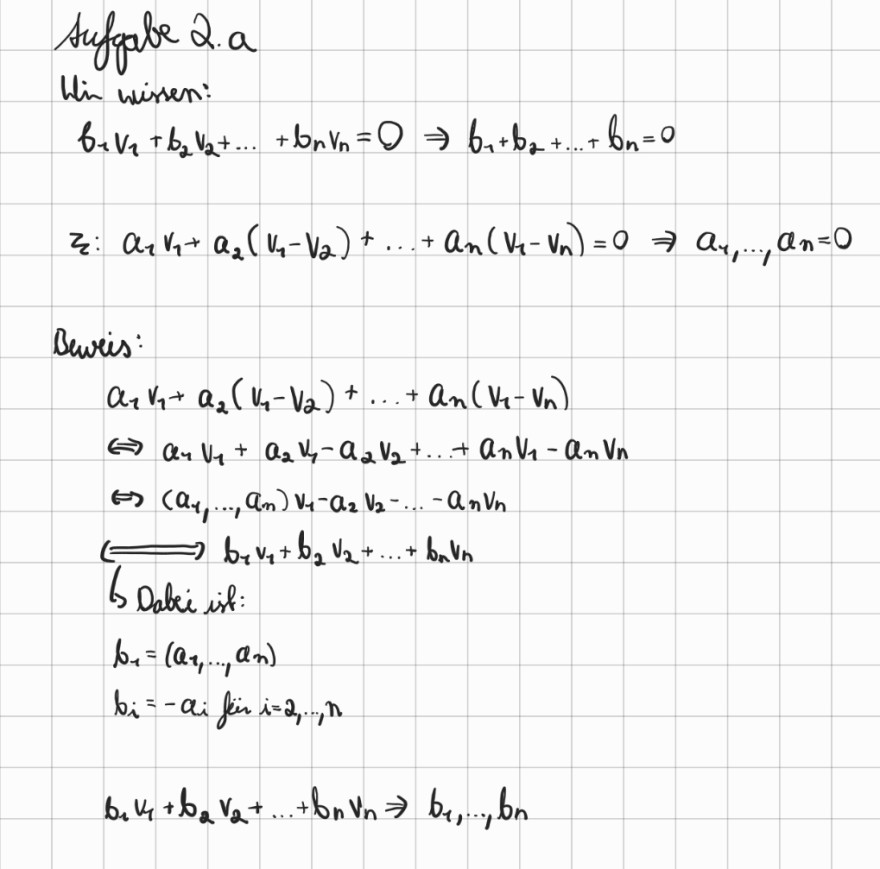 Aufgabe 2.a
Wir wissen:
b₁v₁ + b₂v₂ + ... + bₙvₙ = 0 ⇒ b₁ + b₂ + ... + bₙ = 0
Z: a₁v₁ + a₂(v₁-v₂) + ... + aₙ(v₁-vₙ) = 0 ⇒ a₁,...,aₙ = 0
Beweis:
a₁v₁ + a₂(v₁-v₂) + ... + aₙ(v₁-vₙ)
⇔ a₁v₁ + a₂v₁ - a₂v₂ + ... + aₙv₁ - aₙvₙ
⇔ (a₁,...,aₙ)v₁ - a₂v₂ - ... - aₙvₙ
⟺ b₁v₁ + b₂v₂ + ... + bₙvₙ
↳ Dabei ist:
b₁ = (a₁,...,aₙ)
bᵢ = -aᵢ für i=2,...,n
b₁v₁ + b₂v₂ + ... + bₙvₙ ⇒ b₁,...,bₙ